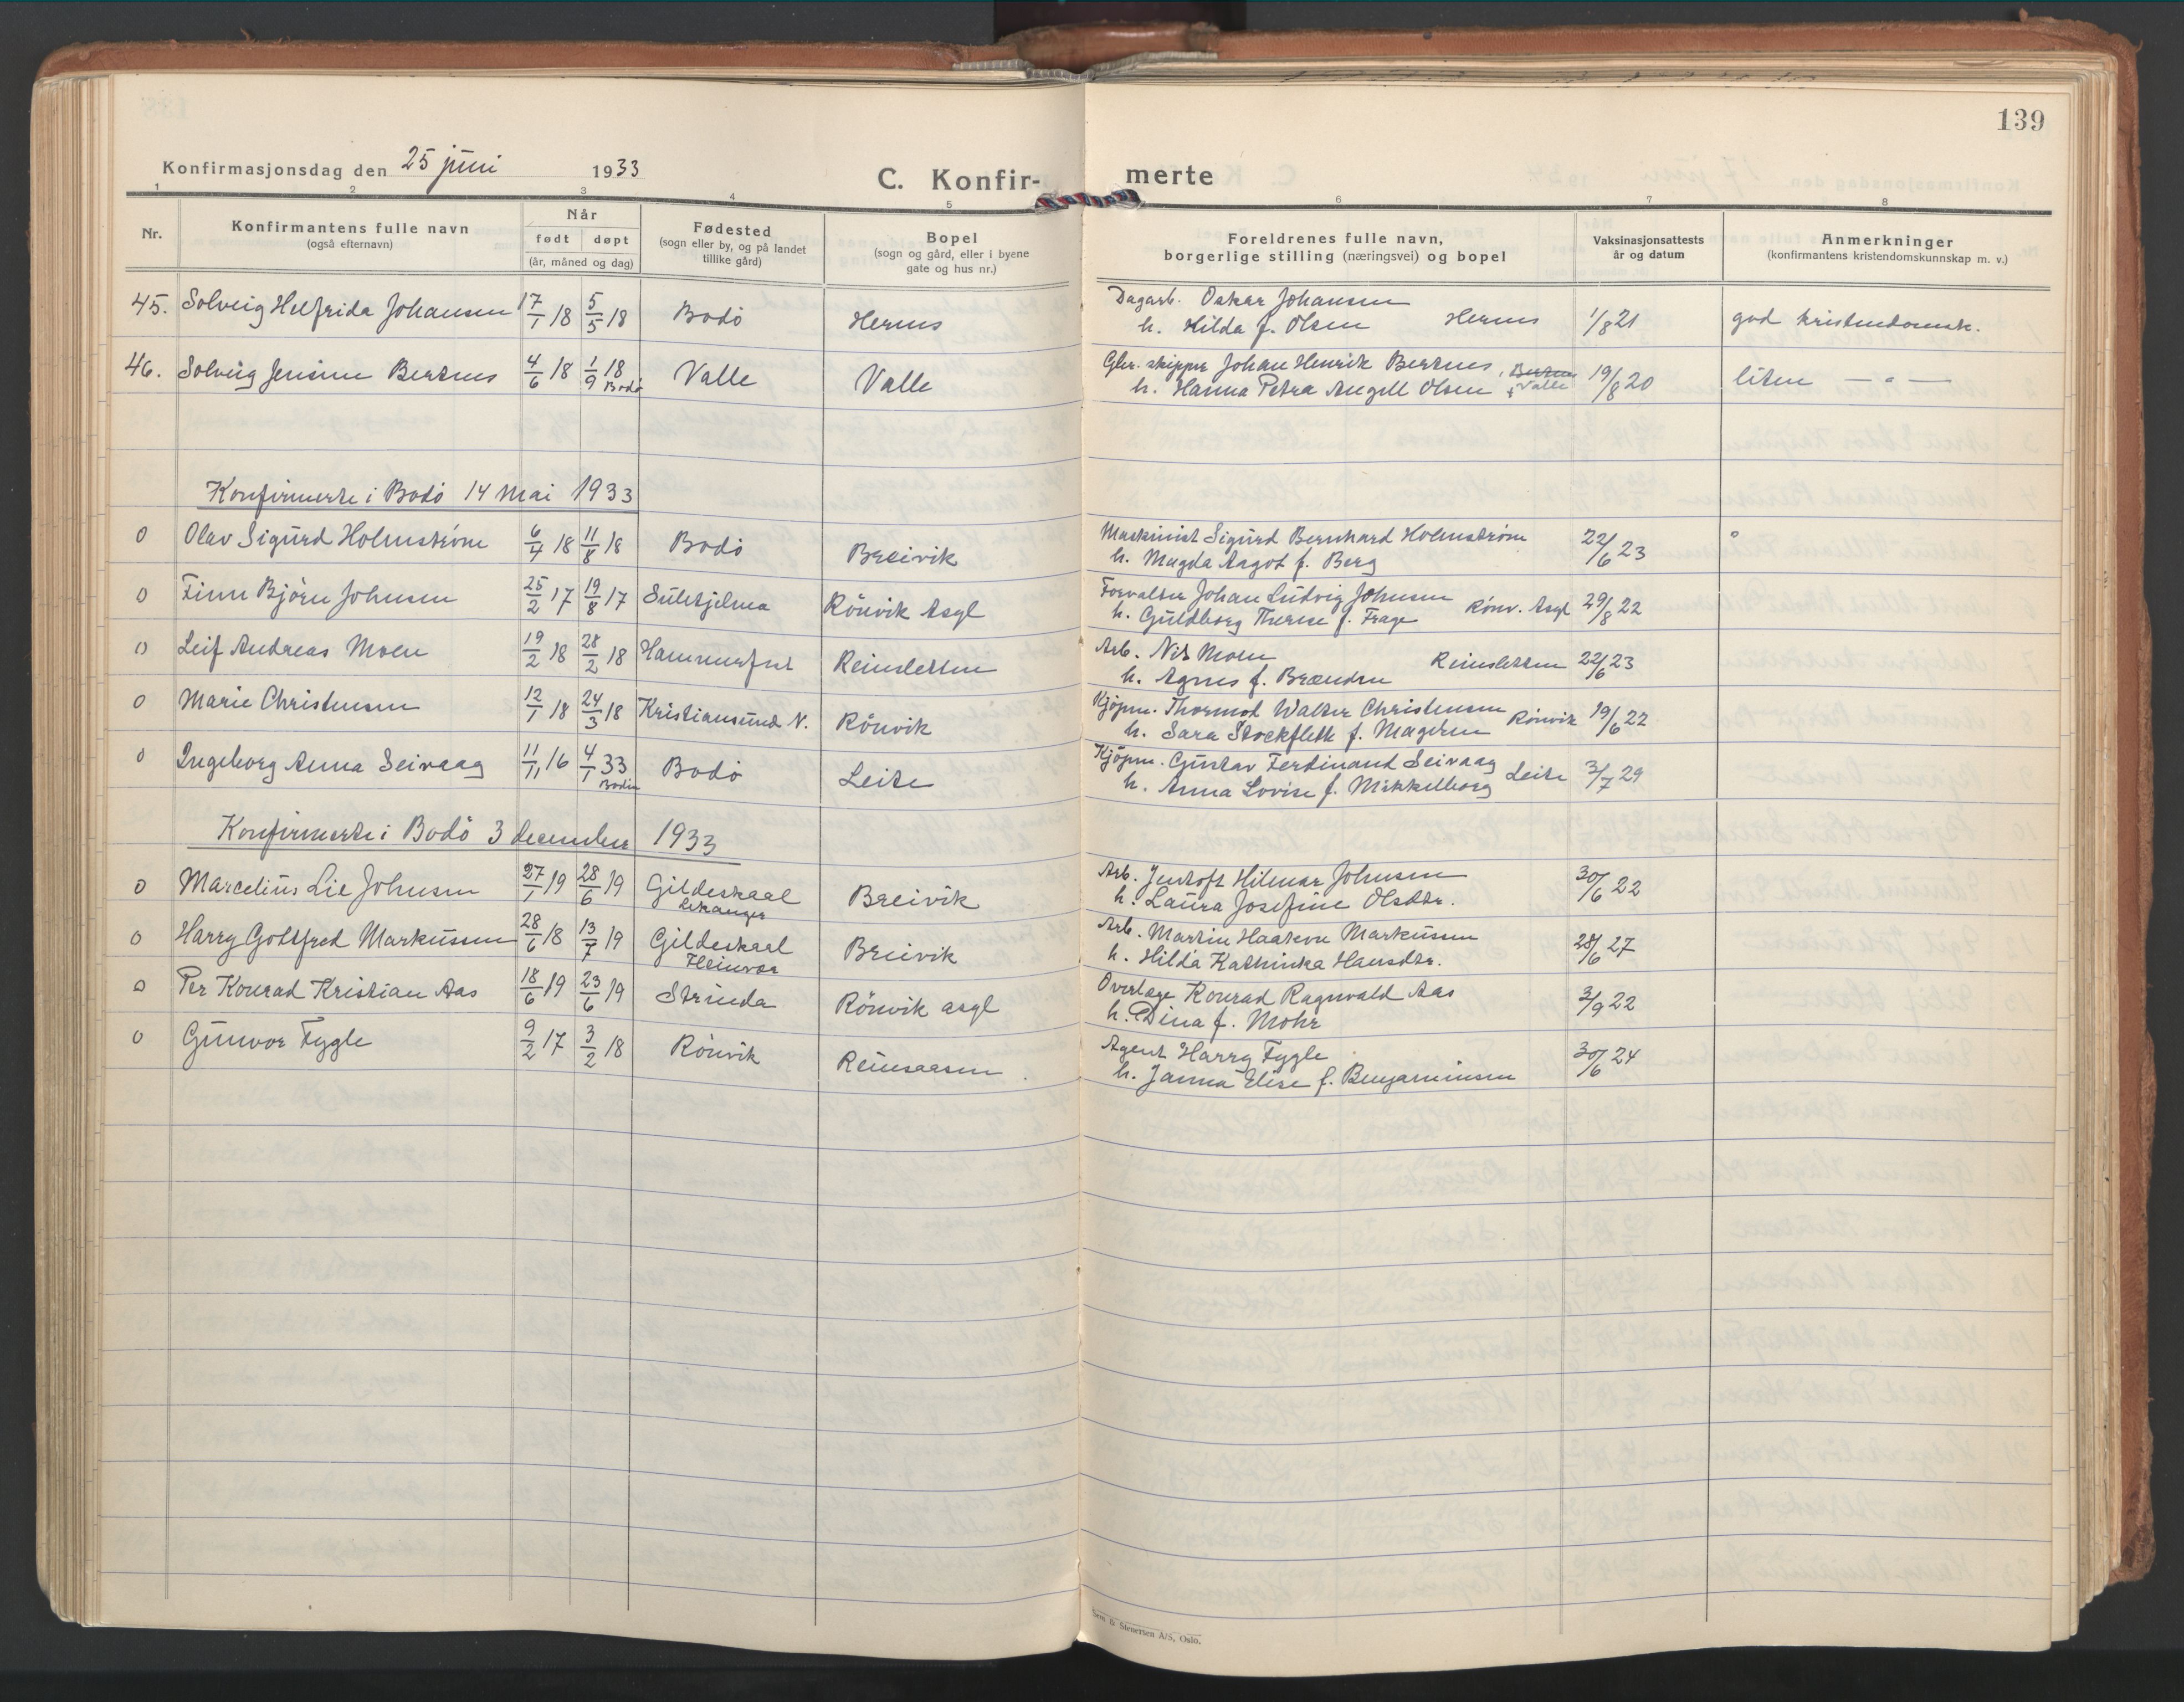 139
Konfirmasjonsdag den 25 juni 1933
C. Konfir- merte
1 2 3 4 5 6 7 8
Nr. Konfirmantens fulle navn (også efternavn) Når født døpt (år, måned og dag) Fødested (sogn eller by, og på landet tillike gård) Bopel (sogn og gård, eller i byene gate og hus nr.) Foreldrenes fulle navn, borgerlige stilling (næringsvei) og bopel Vaksinasjonsattests år og datum Anmerkninger (konfirmantens kristendomskunnskap m. v.)
45. Solveig Helfrida Johansen 17/1 18 5/5 18 Bodö Hernes Dagarb. Oskar Johansen
h. Hilda f. Olsen Hernes 1/8 21 god kristendomsk.
46. Solveig Jensine Bertnes 4/6 18 1/9 18 Bodö Valle Valle skipper Johan Henrik Bertnes, Valle
h. Hanna Petra Angell Olsen 19/8 20 liten — " —
Konfirmerte i Bodö 14 mai 1933
0 Olav Sigurd Holmström 6/4 18 11/8 18 Bodö Breivik Maskinist Sigurd Bernhard Holmström
h. Magda Aagot f. Berg 22/6 23
0 Finn Björn Johnsen 25/2 17 19/8 17 Sulitjelma Rönvik Asyl Forvalter Johan Ludvig Johnsen
h. Guldborg Therese f. Frage Rönv. Asyl 29/8 22
0 Leif Andreas Moen 19/2 18 28/2 18 Hammerfest Reinsletten Arb. Nils Moen
h. Agnes f. Brænden Reinsletten 22/6 23
0 Marie Christensen 12/1 18 24/3 18 Kristiansund N. Rönvik Kjöpm. Thormod Walter Christensen
h. Sara Stockfleth f. Mageren Rönvik 19/6 22
0 Ingeborg Anna Seivaag 11/11 16 4/1 33 Bodin Bodö Leite Kjöpm. Gustav Ferdinand Seivaag
h. Anna Lovise f. Mikkelborg Leite 3/7 29
Konfirmerte i Bodö 3 december 1933
0 Marcelius Lie Johnsen 27/1 19 28/6 19 Gildeskaal Lekanger Breivik Arb. Jentoft Hilmar Johnsen
h. Laura Josefine Olsdtr. 30/6 22
0 Harry Gottfred Markussen 28/6 18 13/7 19 Gildeskaal Fleinvær Breivik Arb. Martin Haakon Markussen
h. Hilda Kathinka Hansdtr. 28/6 27
0 Per Konrad Kristian Aas 18/6 19 23/6 19 Strinda Rönvik asyl Overlæge Konrad Ragnvald Aas
h. Dina f. Mohr 3/9 22
0 Gunvor Fygle 9/2 17 3/2 18 Rönvik Reinsaasen Agent Harry Fygle
h. Janna Elise f. Benjaminsen 30/6 24
Stenersen A/S, Oslo.